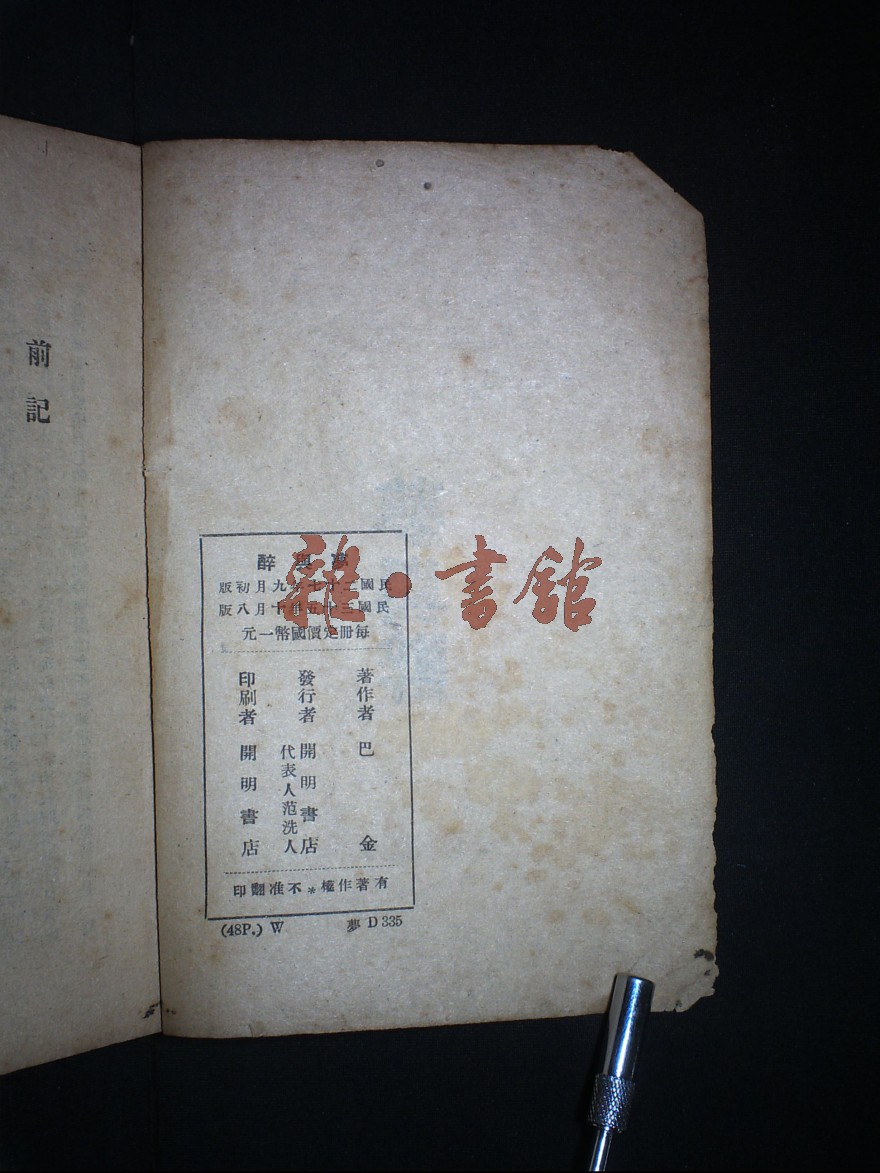 夢與醉
民國二十七年九月初版
民國三十五年十月八版
每冊定價國幣一元
著作者 巴金
發行者 開明書店
代表人范洗人
印刷者 開明書店
有著作權*不准翻印
(48P.) W 夢 D 335
前記
雜·書館